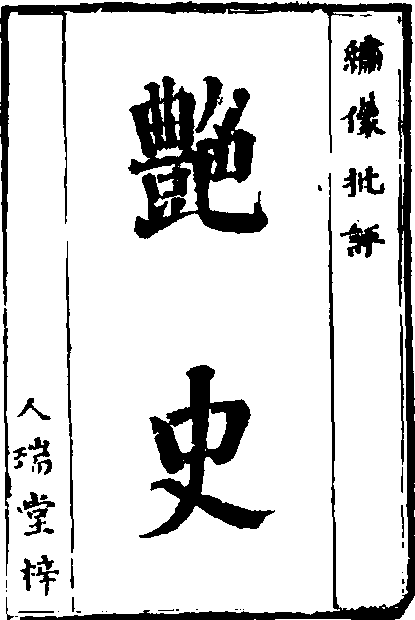 繡像批評
艷史
人瑞堂梓